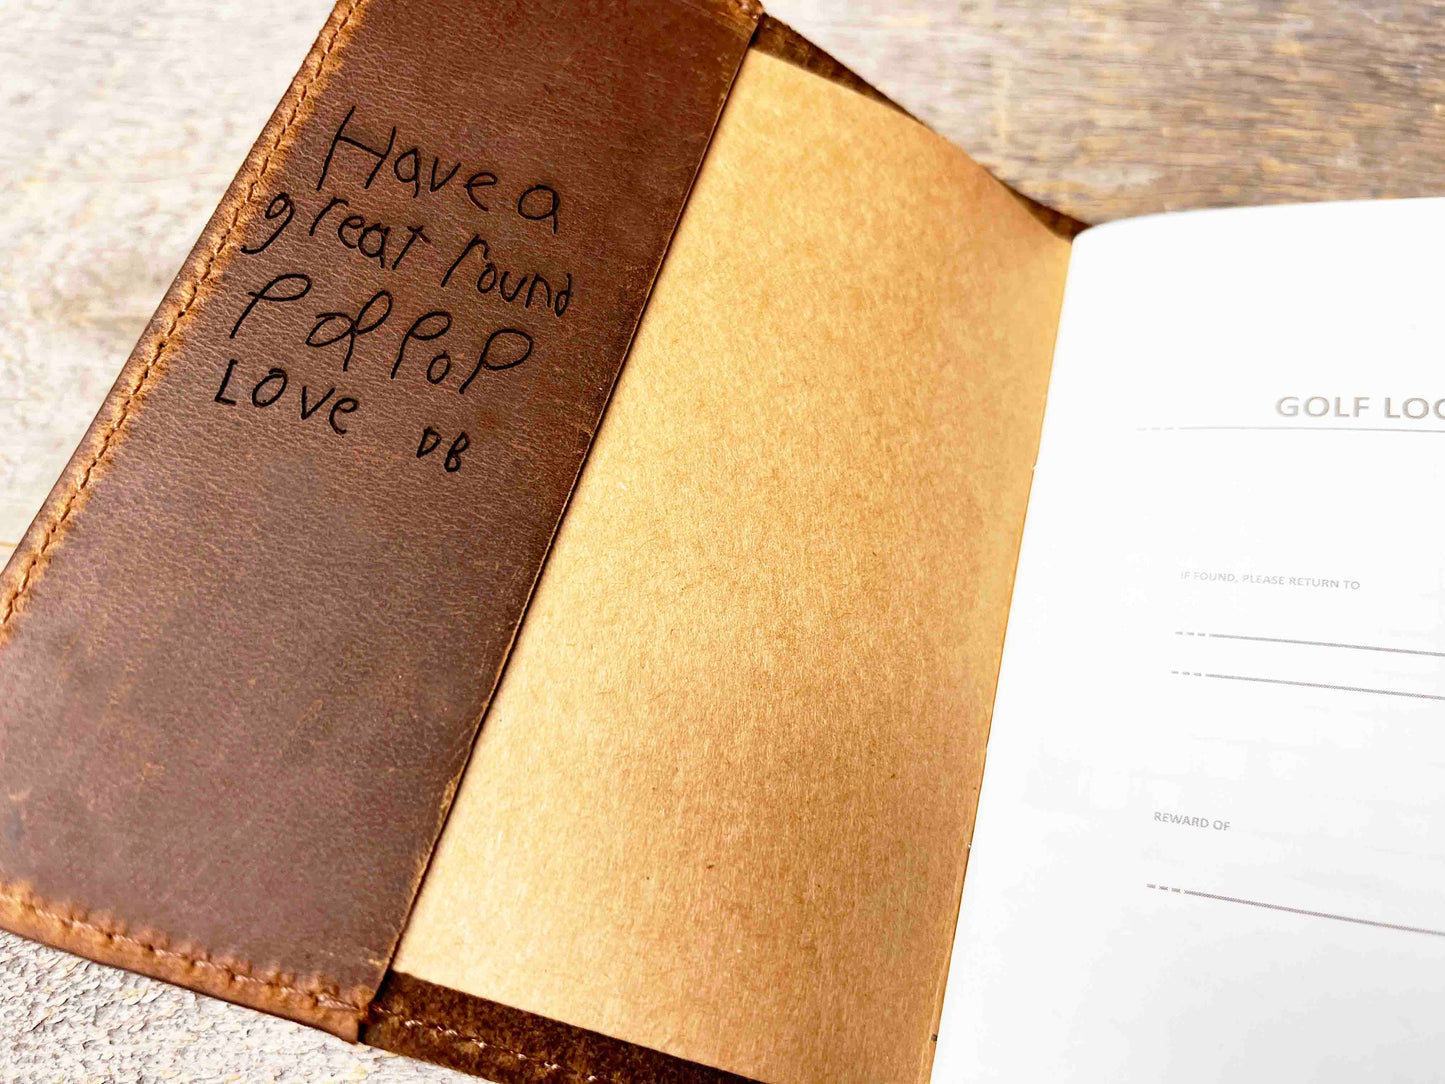 Have a
great round
Pop PoP
Love DB
GOLF LOG
IF FOUND, PLEASE RETURN TO
REWARD OF